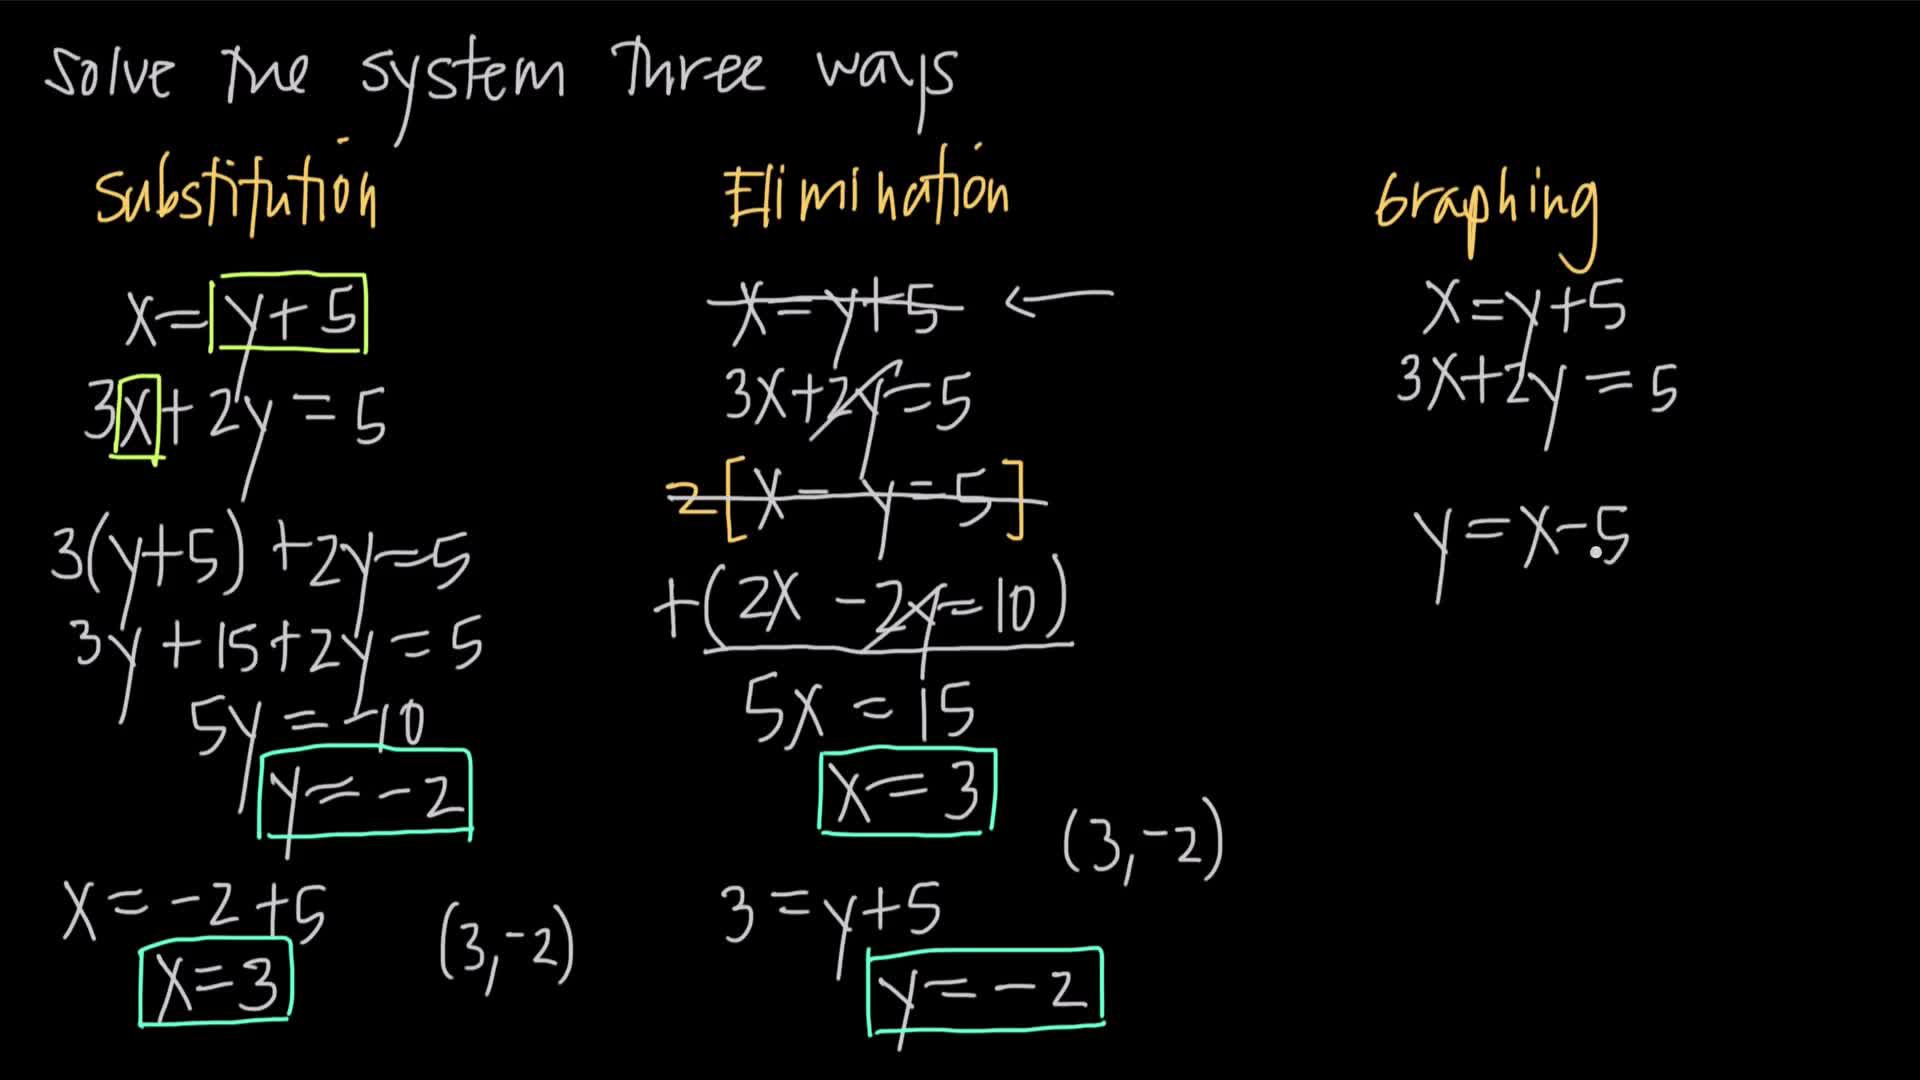 Solve the system three ways
Substitution
x = y + 5
3x + 2y = 5
3(y+5) + 2y = 5
3y + 15 + 2y = 5
5y = -10
y = -2
x = -2 + 5
x = 3
(3, -2)
Elimination
x = y + 5 ←
3x + 2y = 5
2[x - y = 5]
+(2x - 2y = 10)
5x = 15
x = 3
(3, -2)
3 = y + 5
y = -2
Graphing
x = y + 5
3x + 2y = 5
y = x - 5